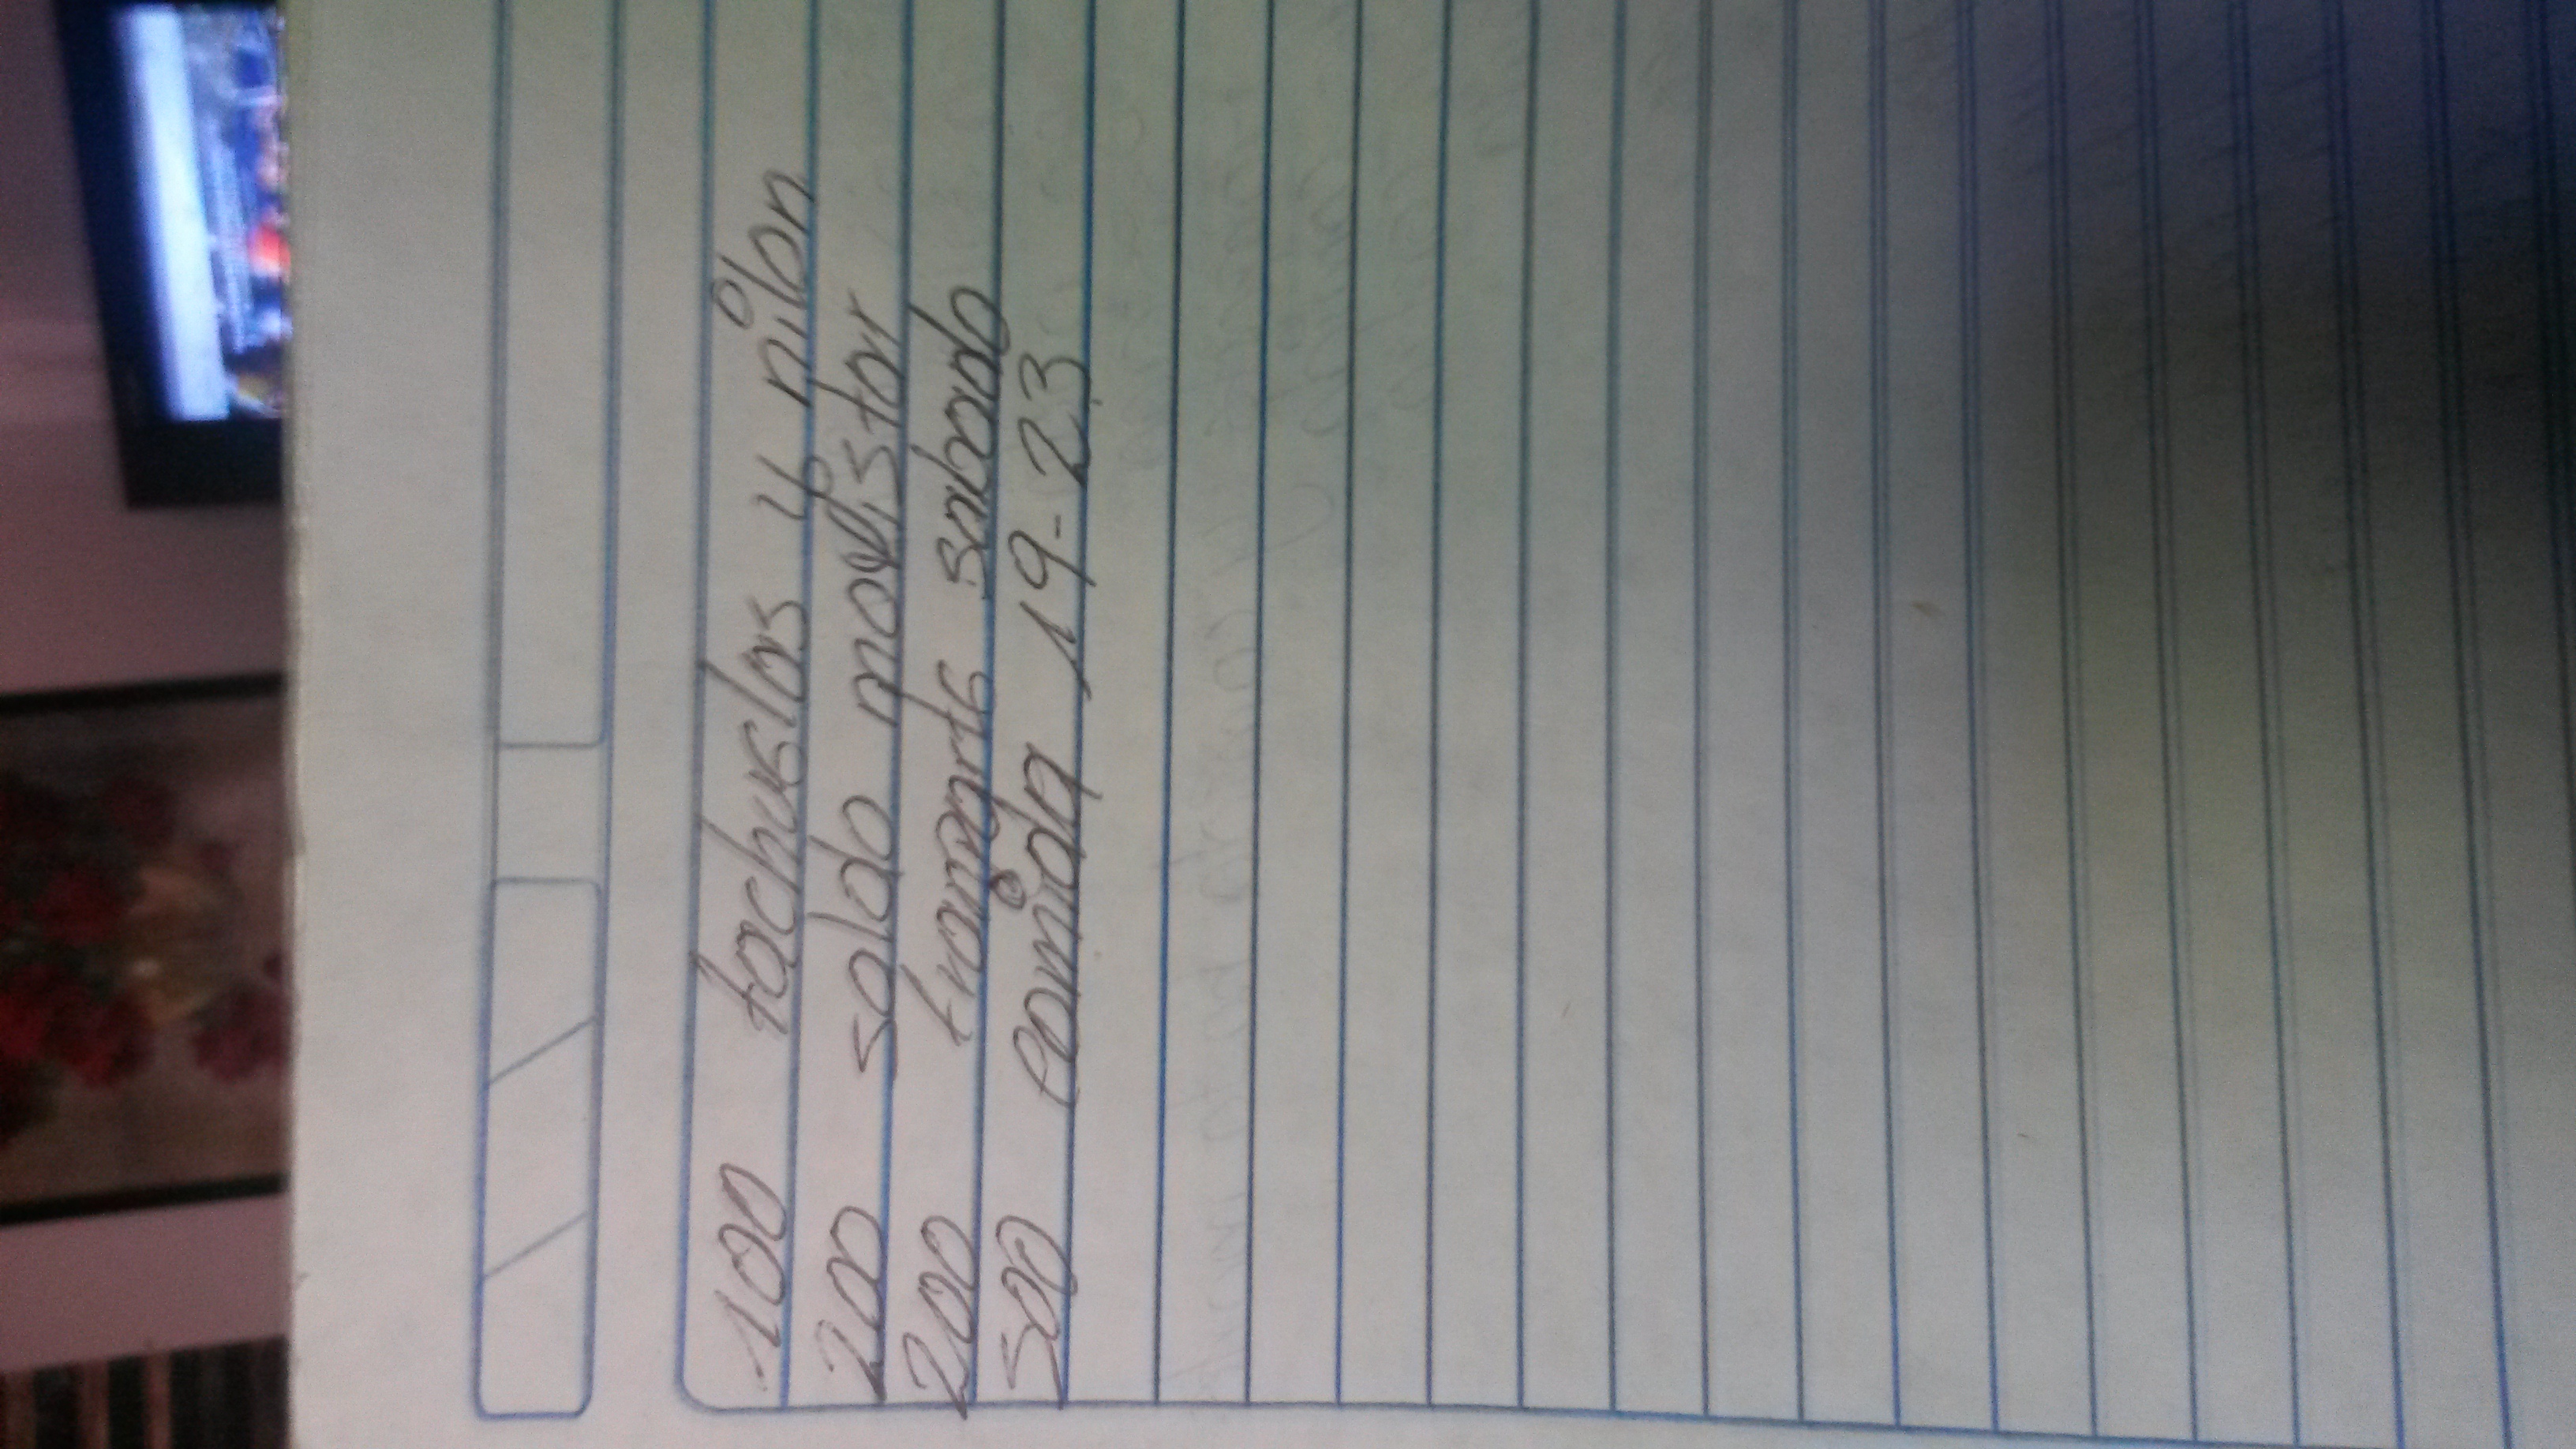 100 tachuelas y nilon
200 saldo movistar
200 tranporte sabado
500 comida 19-23